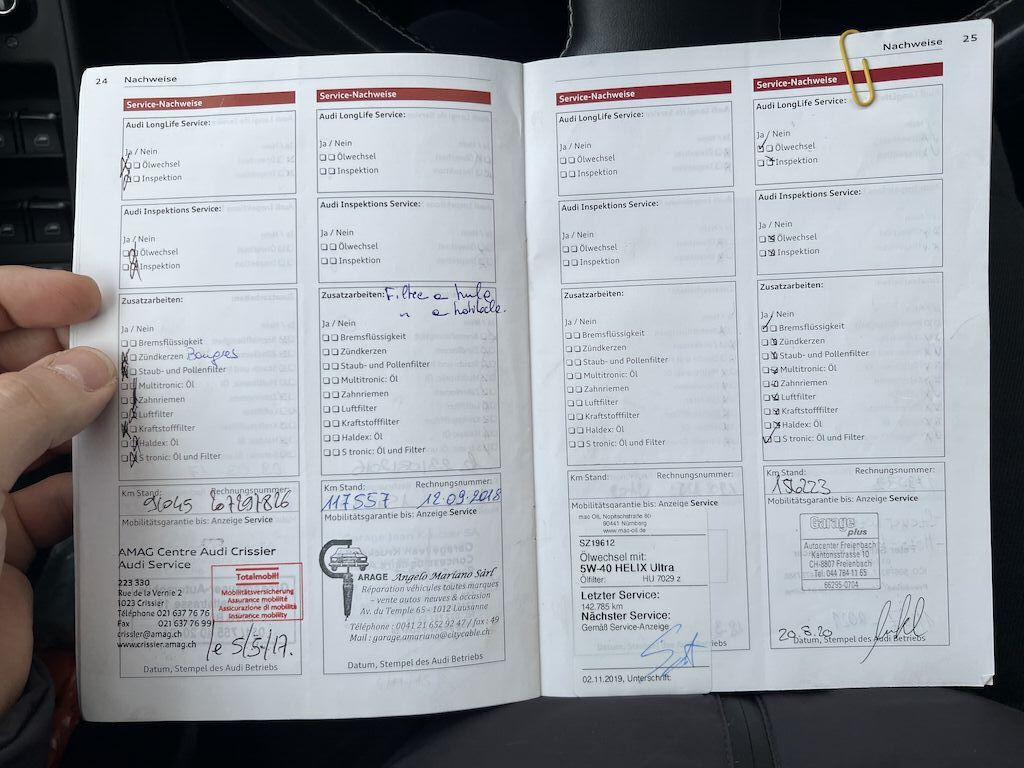 24 Nachweise
Service-Nachweise
Audi LongLife Service:
Ja / Nein
Ölwechsel
Inspektion
Audi Inspektions Service:
Ja / Nein
Ölwechsel
Inspektion
Zusatzarbeiten:
Ja / Nein
Bremsflüssigkeit
Zündkerzen Bougies
Staub- und Pollenfilter
Multitronic: Öl
Zahnriemen
Luftfilter
Kraftstofffilter
Haldex: Öl
S tronic: Öl und Filter
Km Stand: Rechnungsnummer:
91045 67297826
Mobilitätsgarantie bis: Anzeige Service
AMAG Centre Audi Crissier
Audi Service
223 330
Rue de la Vernie 2
1023 Crissier
Téléphone 021 637 76 76
Fax 021 637 76 99
crissier@amag.ch
www.crissier.amag.ch
Totalmobil!
Mobilitätsversicherung
Assurance mobilité
Assicurazione di mobilità
Insurance mobility
le 5/5/17.
Datum, Stempel des Audi Betriebs
Service-Nachweise
Audi LongLife Service:
Ja / Nein
Ölwechsel
Inspektion
Audi Inspektions Service:
Ja / Nein
Ölwechsel
Inspektion
Zusatzarbeiten: Filtre a huile
a habitacle.
Ja / Nein
Bremsflüssigkeit
Zündkerzen
Staub- und Pollenfilter
Multitronic: Öl
Zahnriemen
Luftfilter
Kraftstofffilter
Haldex: Öl
S tronic: Öl und Filter
Km Stand: Rechnungsnummer:
117557 12.09.2018
Mobilitätsgarantie bis: Anzeige Service
GARAGE Angelo Mariano Sàrl
Réparation véhicules toutes marques
- vente autos neuves & occasion
Av. du Temple 65 - 1012 Lausanne
Téléphone : 0041 21 652 92 47 / fax : 49
Mail : garage.amariano@citycable.ch
Datum, Stempel des Audi Betriebs
Nachweise 25
Service-Nachweise
Audi LongLife Service:
Ja / Nein
Ölwechsel
Inspektion
Audi Inspektions Service:
Ja / Nein
Ölwechsel
Inspektion
Zusatzarbeiten:
Ja / Nein
Bremsflüssigkeit
Zündkerzen
Staub- und Pollenfilter
Multitronic: Öl
Zahnriemen
Luftfilter
Kraftstofffilter
Haldex: Öl
S tronic: Öl und Filter
Km Stand: Rechnungsnummer:
Mobilitätsgarantie bis: Anzeige Service
mac OIL Nopitschstraße 80
90441 Nürnberg
www.mac-oil.de
SZ19612
Ölwechsel mit:
5W-40 HELIX Ultra
Ölfilter: HU 7029 z
Letzter Service:
142.785 km
Nächster Service:
Gemäß Service-Anzeige
02.11.2019, Unterschrift:
Service-Nachweise
Audi LongLife Service:
Ja / Nein
Ölwechsel
Inspektion
Audi Inspektions Service:
Ja / Nein
Ölwechsel
Inspektion
Zusatzarbeiten:
Ja / Nein
Bremsflüssigkeit
Zündkerzen
Staub- und Pollenfilter
Multitronic: Öl
Zahnriemen
Luftfilter
Kraftstofffilter
Haldex: Öl
S tronic: Öl und Filter
Km Stand: Rechnungsnummer:
Mobilitätsgarantie bis: Anzeige Service
Garage
plus
Autocenter Freienbach
Kantonsstrasse 10
CH-8807 Freienbach
Tel. 044 784 11 65
66295-0704
20.6.20
Datum, Stempel des Audi Betriebs